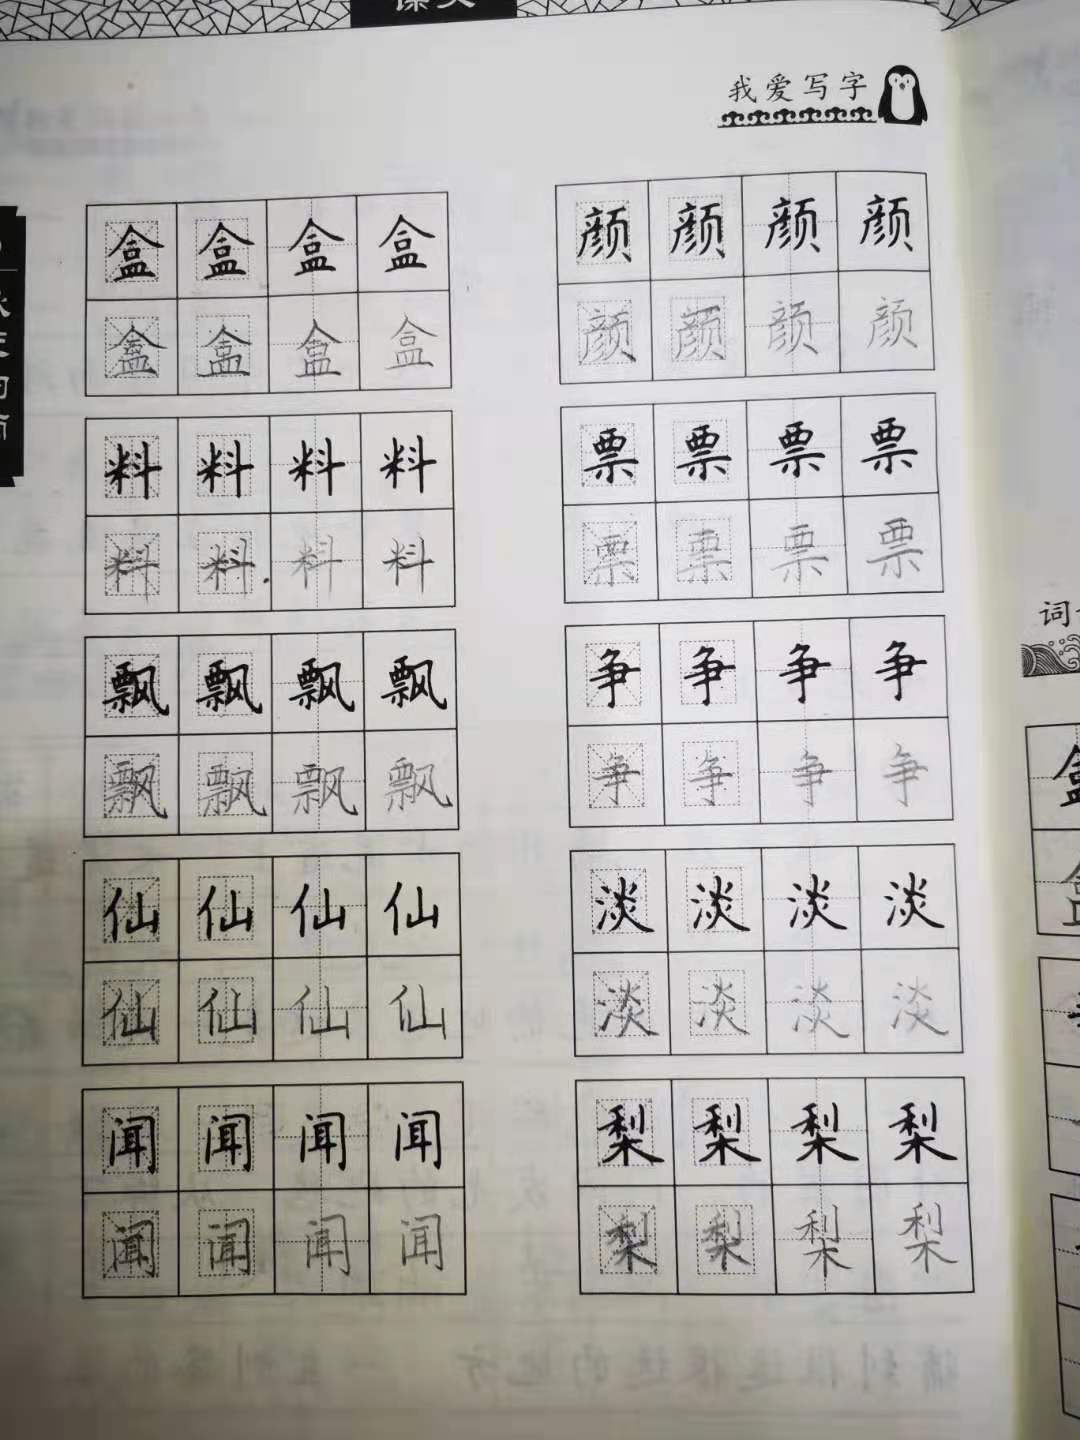 课文
我爱写字
盒盒盒盒 颜颜颜颜
盒盒盒盒 颜颜颜颜
料料料料 票票票票
料料料料 票票票票
飘飘飘飘 争争争争
飘飘飘飘 争争争争
仙仙仙仙 淡淡淡淡
仙仙仙仙 淡淡淡淡
闻闻闻闻 梨梨梨梨
闻闻闻闻 梨梨梨梨
词
盒
盒